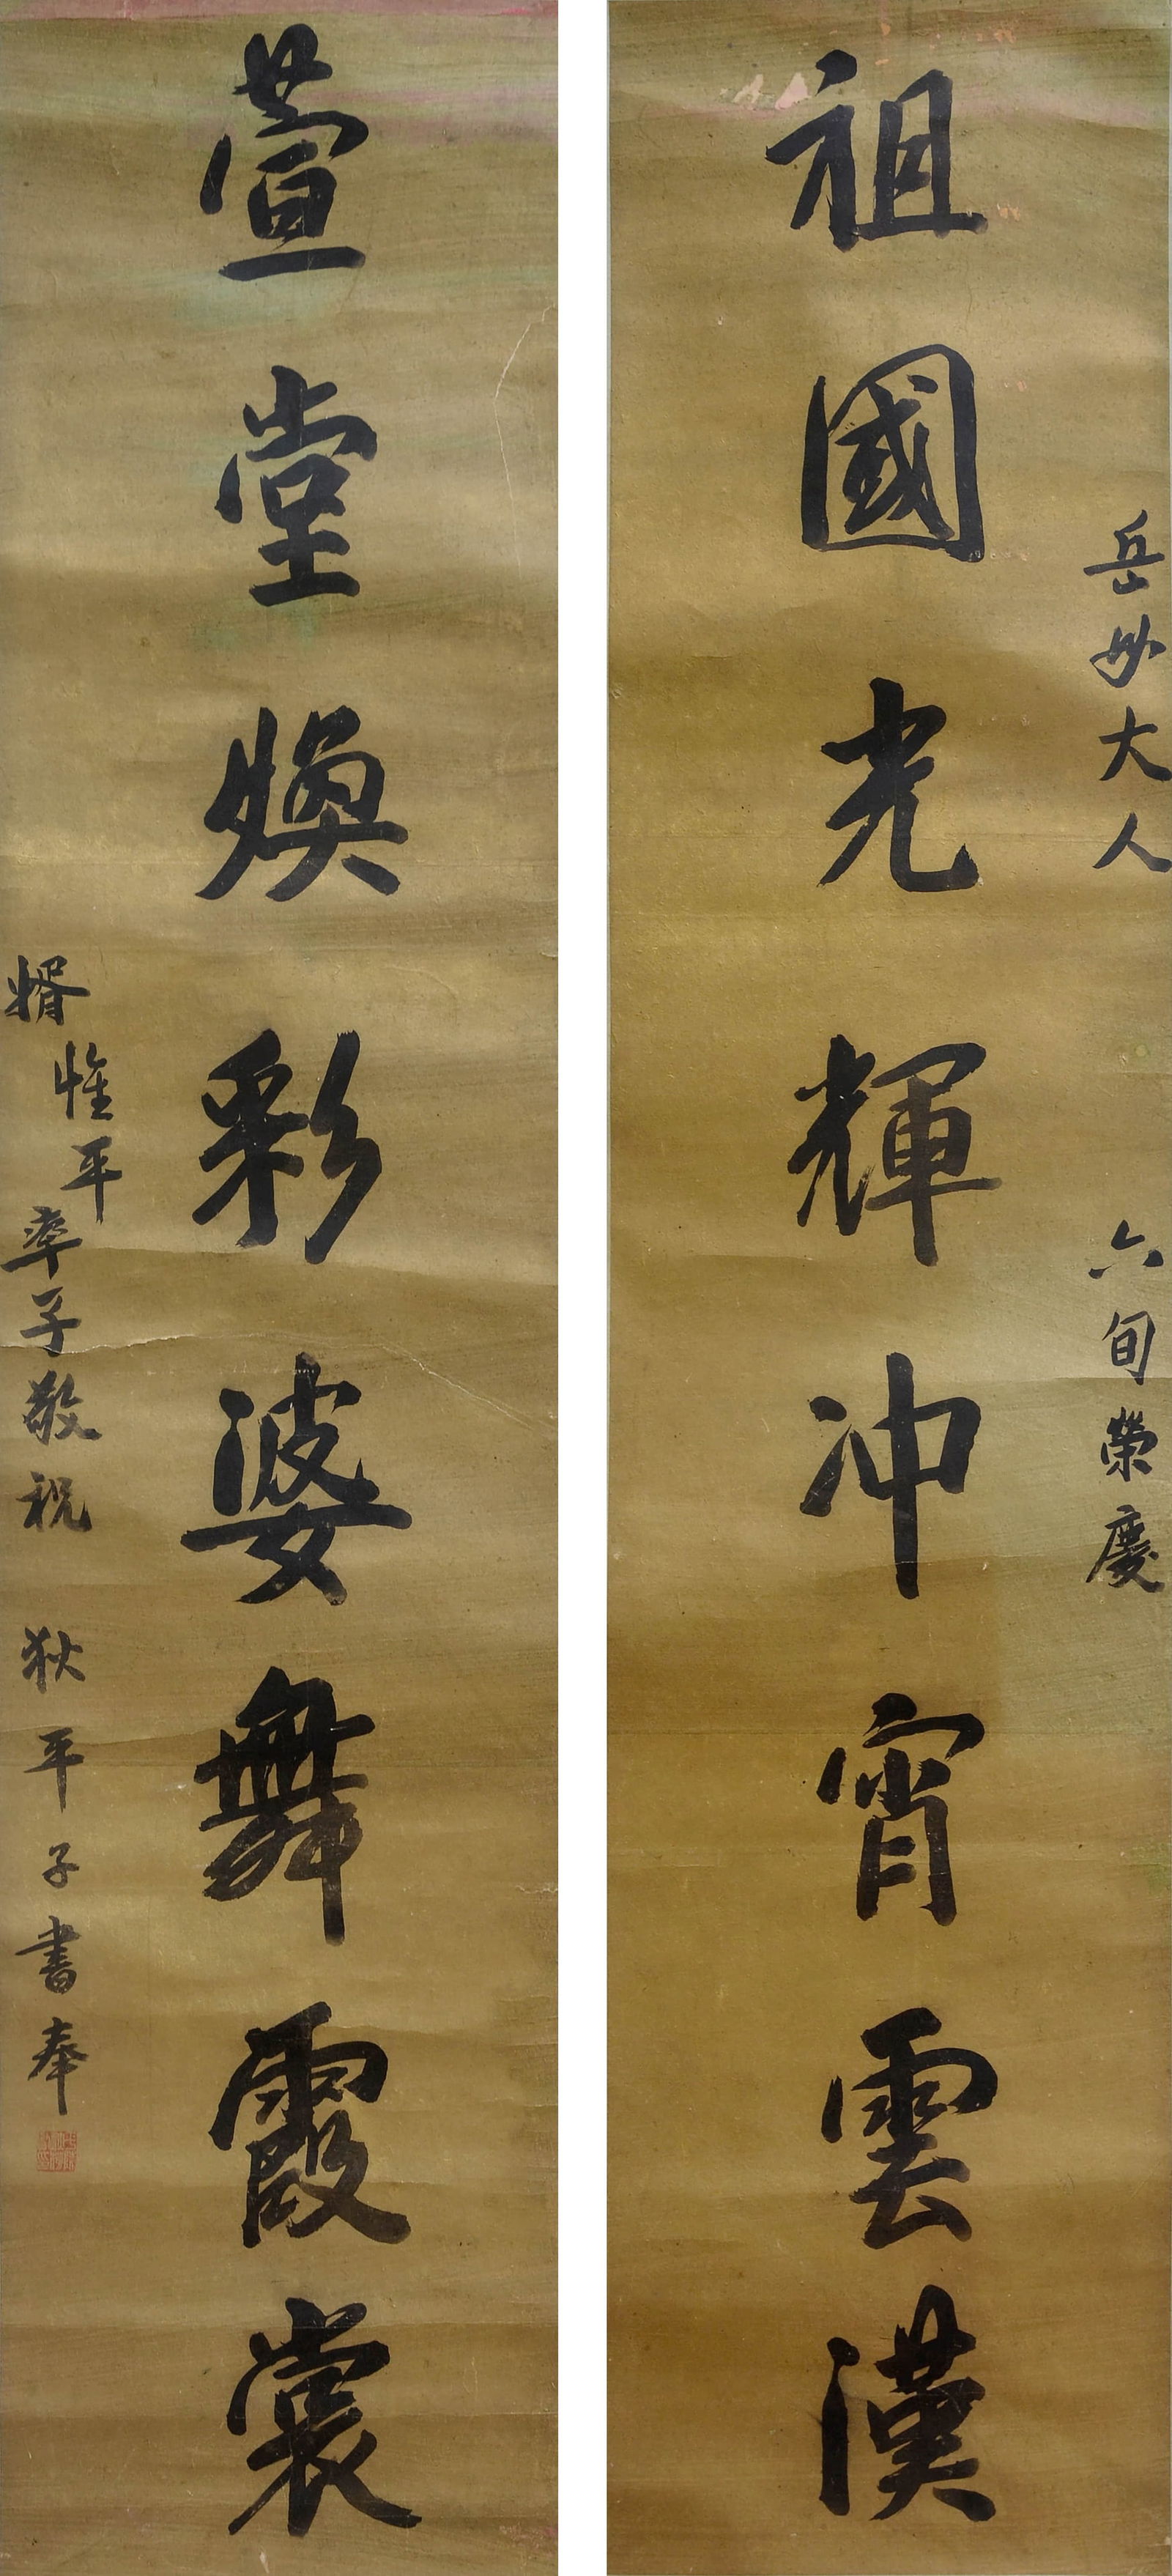 岳妙大人 六旬榮慶
祖國光輝冲宵雲漢
萱堂煥彩婆舞霞裳
婿惟平率子敬祝 狄平子書奉